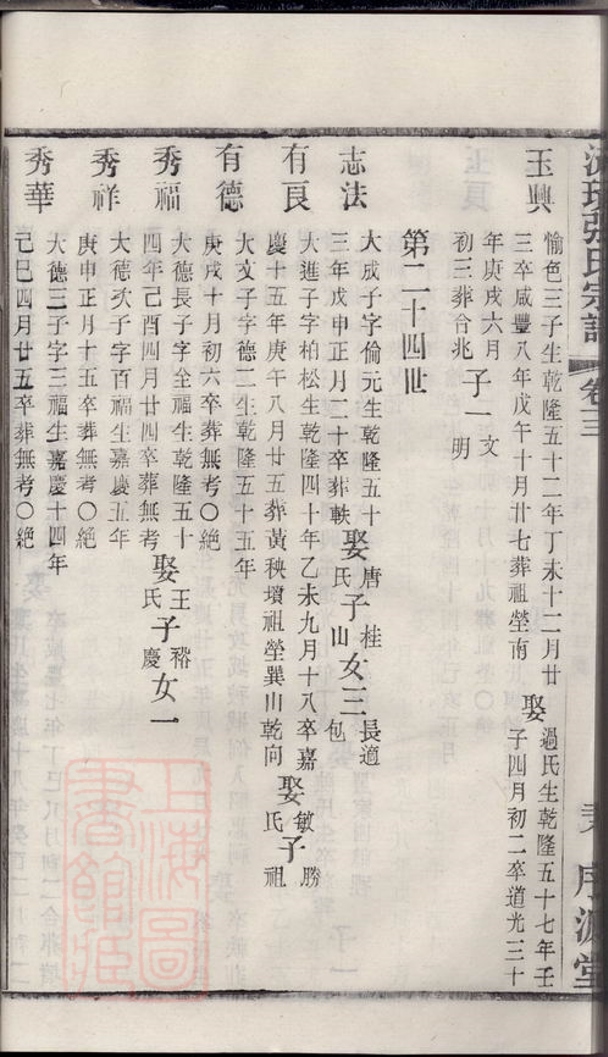 張氏宗譜 卷三
玉興
愉色三子生乾隆五十二年丁未十二月廿
三卒咸豐八年戊午十月廿七葬祖塋南
娶
過氏生乾隆五十七年壬
子四月初二卒道光三十
年庚戌六月
初三葬合兆
子一 文明
第二十四世
志法
大成子字倫元生乾隆五十
三年戊申正月二十卒葬軼
娶唐氏 子桂山 女三 長適包
有良
大進子字柏松生乾隆四十年乙未九月十八卒嘉
慶十五年庚午八月廿五葬黃秧墳祖塋巽山乾向
娶敏氏 子勝祖
有德
大文子字德二生乾隆五十五年
庚戌十月初六卒葬無考〇絕
秀福
大德長子字全福生乾隆五十
四年己酉四月廿四卒葬無考
娶王氏 子裕慶 女一
秀祥
大德次子字百福生嘉慶五年
庚申正月十五卒葬無考〇絕
秀華
大德三子字三福生嘉慶十四年
己巳四月廿五卒葬無考〇絕
上海圖書館藏